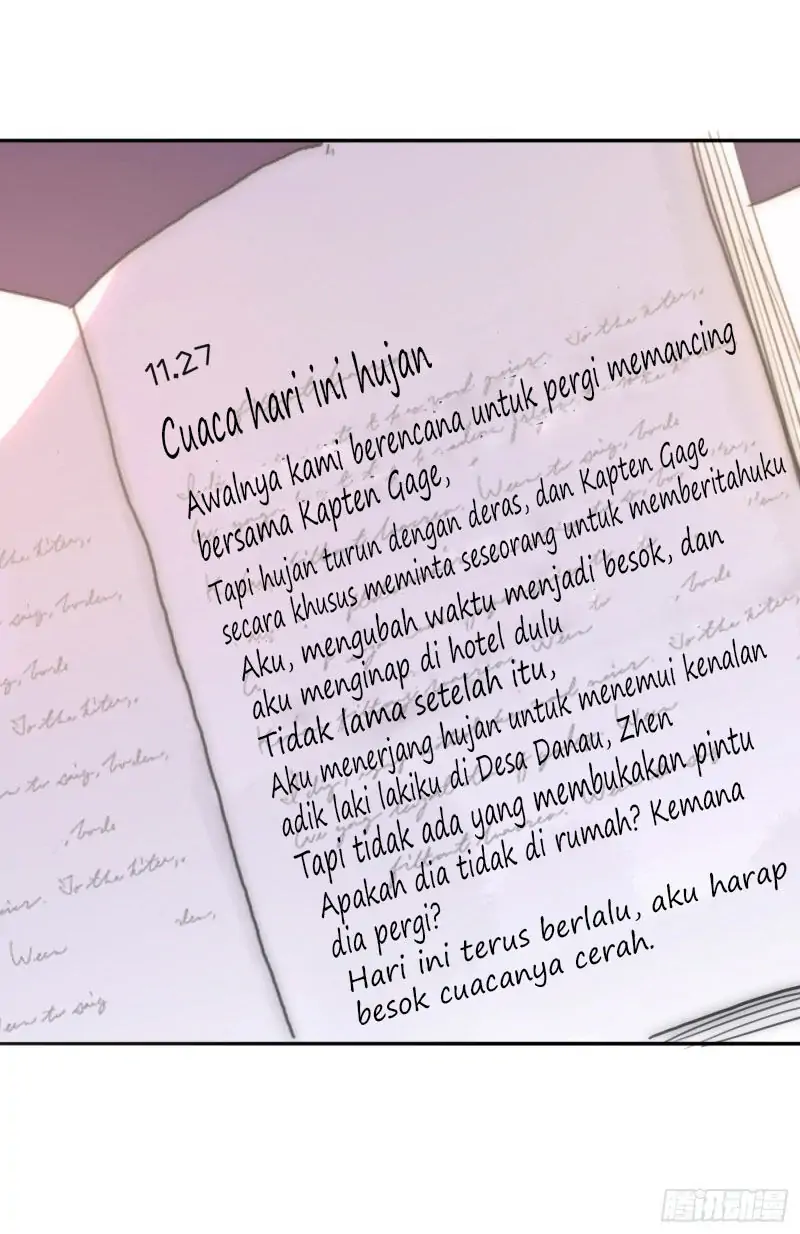 11.27
Cuaca hari ini hujan
Awalnya kami berencana untuk pergi memancing
bersama Kapten Gage,
Tapi hujan turun dengan deras, dan Kapten Gage
secara khusus meminta seseorang untuk memberitahuku
Aku, mengubah waktu menjadi besok, dan
aku menginap di hotel dulu
Tidak lama setelah itu,
Aku menerjang hujan untuk menemui kenalan
adik laki lakiku di Desa Danau, Zhen
Tapi tidak ada yang membukakan pintu
Apakah dia tidak di rumah? Kemana
dia pergi?
Hari ini terus berlalu, aku harap
besok cuacanya cerah.
腾讯动漫